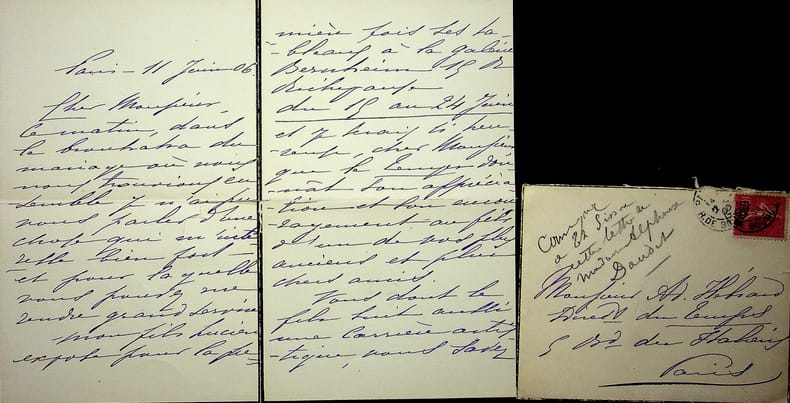 Paris – 11 Juin 06.
Cher Monsieur,
Ce matin, dans
le brouhaha du
mariage où nous
nous trouvions en
semble je n'ai pu
vous parler d'une
chose qui m'inté
resse bien fort –
et pour laquelle
vous pouvez me
rendre grand service
Mon fils Lucien
expose pour la pre
mière fois ses ta-
-bleaux à la galerie
Bernheim 15 R
Richepanse
du 15 au 24 Juin
et je serais si heu-
reuse, cher Monsieur
que le Temps don-
nât son apprécia
tion et son encou
ragement au fils
d'un de vos plus
anciens et plus
chers amis.
Vous dont le
fils suit aussi
une carrière artis
-tique, vous savez
Monsieur Ad. Hébrard
Direct. du Temps
5 Bd des Italiens
Paris
cette lettre de
Madame Alphonse
Daudet